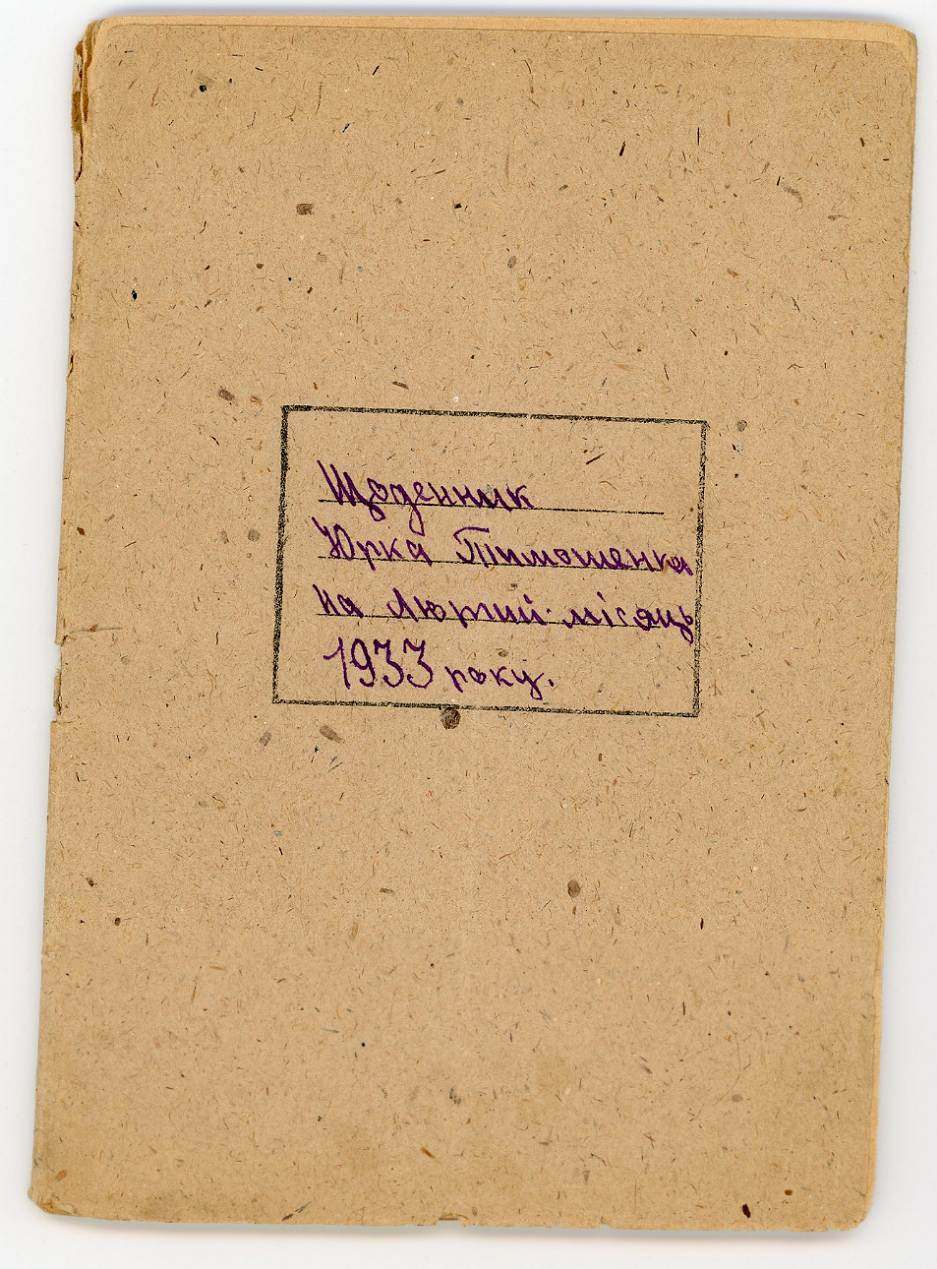 Щоденник
Юрка Тимошенка
на лютий місяць
1933 року.